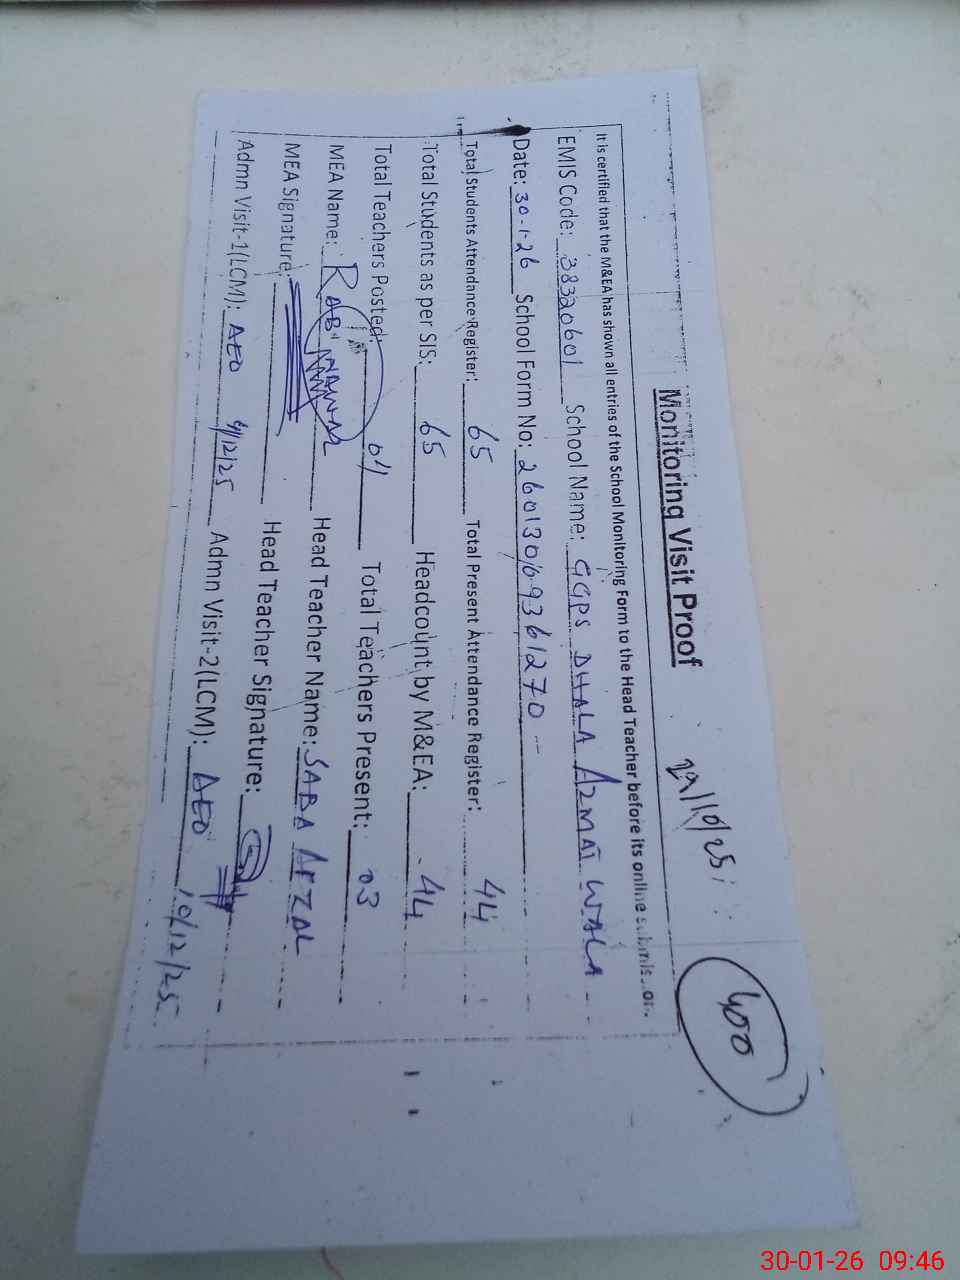 29/10/25
400
Monitoring Visit Proof
It is certified that the M&EA has shown all entries of the School Monitoring Form to the Head Teacher before its online submission.
EMIS Code: 38320601 School Name: GGPS DHALA AZMAT WALA
Date: 30-1-26 School Form No: 260130109361270
Total Students Attendance Register: 65 Total Present Attendance Register: 44
Total Students as per SIS: 65 Headcount by M&EA: 44
Total Teachers Posted: 04 Total Teachers Present: 03
MEA Name: RAB NAWAZ Head Teacher Name: SABA AFZAL
MEA Signature: Head Teacher Signature:
Admn Visit-1(LCM): AEO 4/12/25 Admn Visit-2(LCM): AEO 10/12/25
30-01-26 09:46